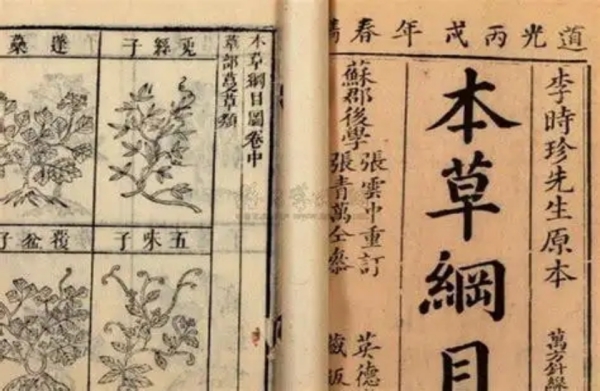 道光丙戌年春
李時珍先生原本
萬方針線
本草綱目
蘇郡後學
張雲中重訂
張青萬仝叅
英德
藏版
本草綱目圖卷中
草部蔓草類
兎絲子
蓬蘽
五味子
覆盆子